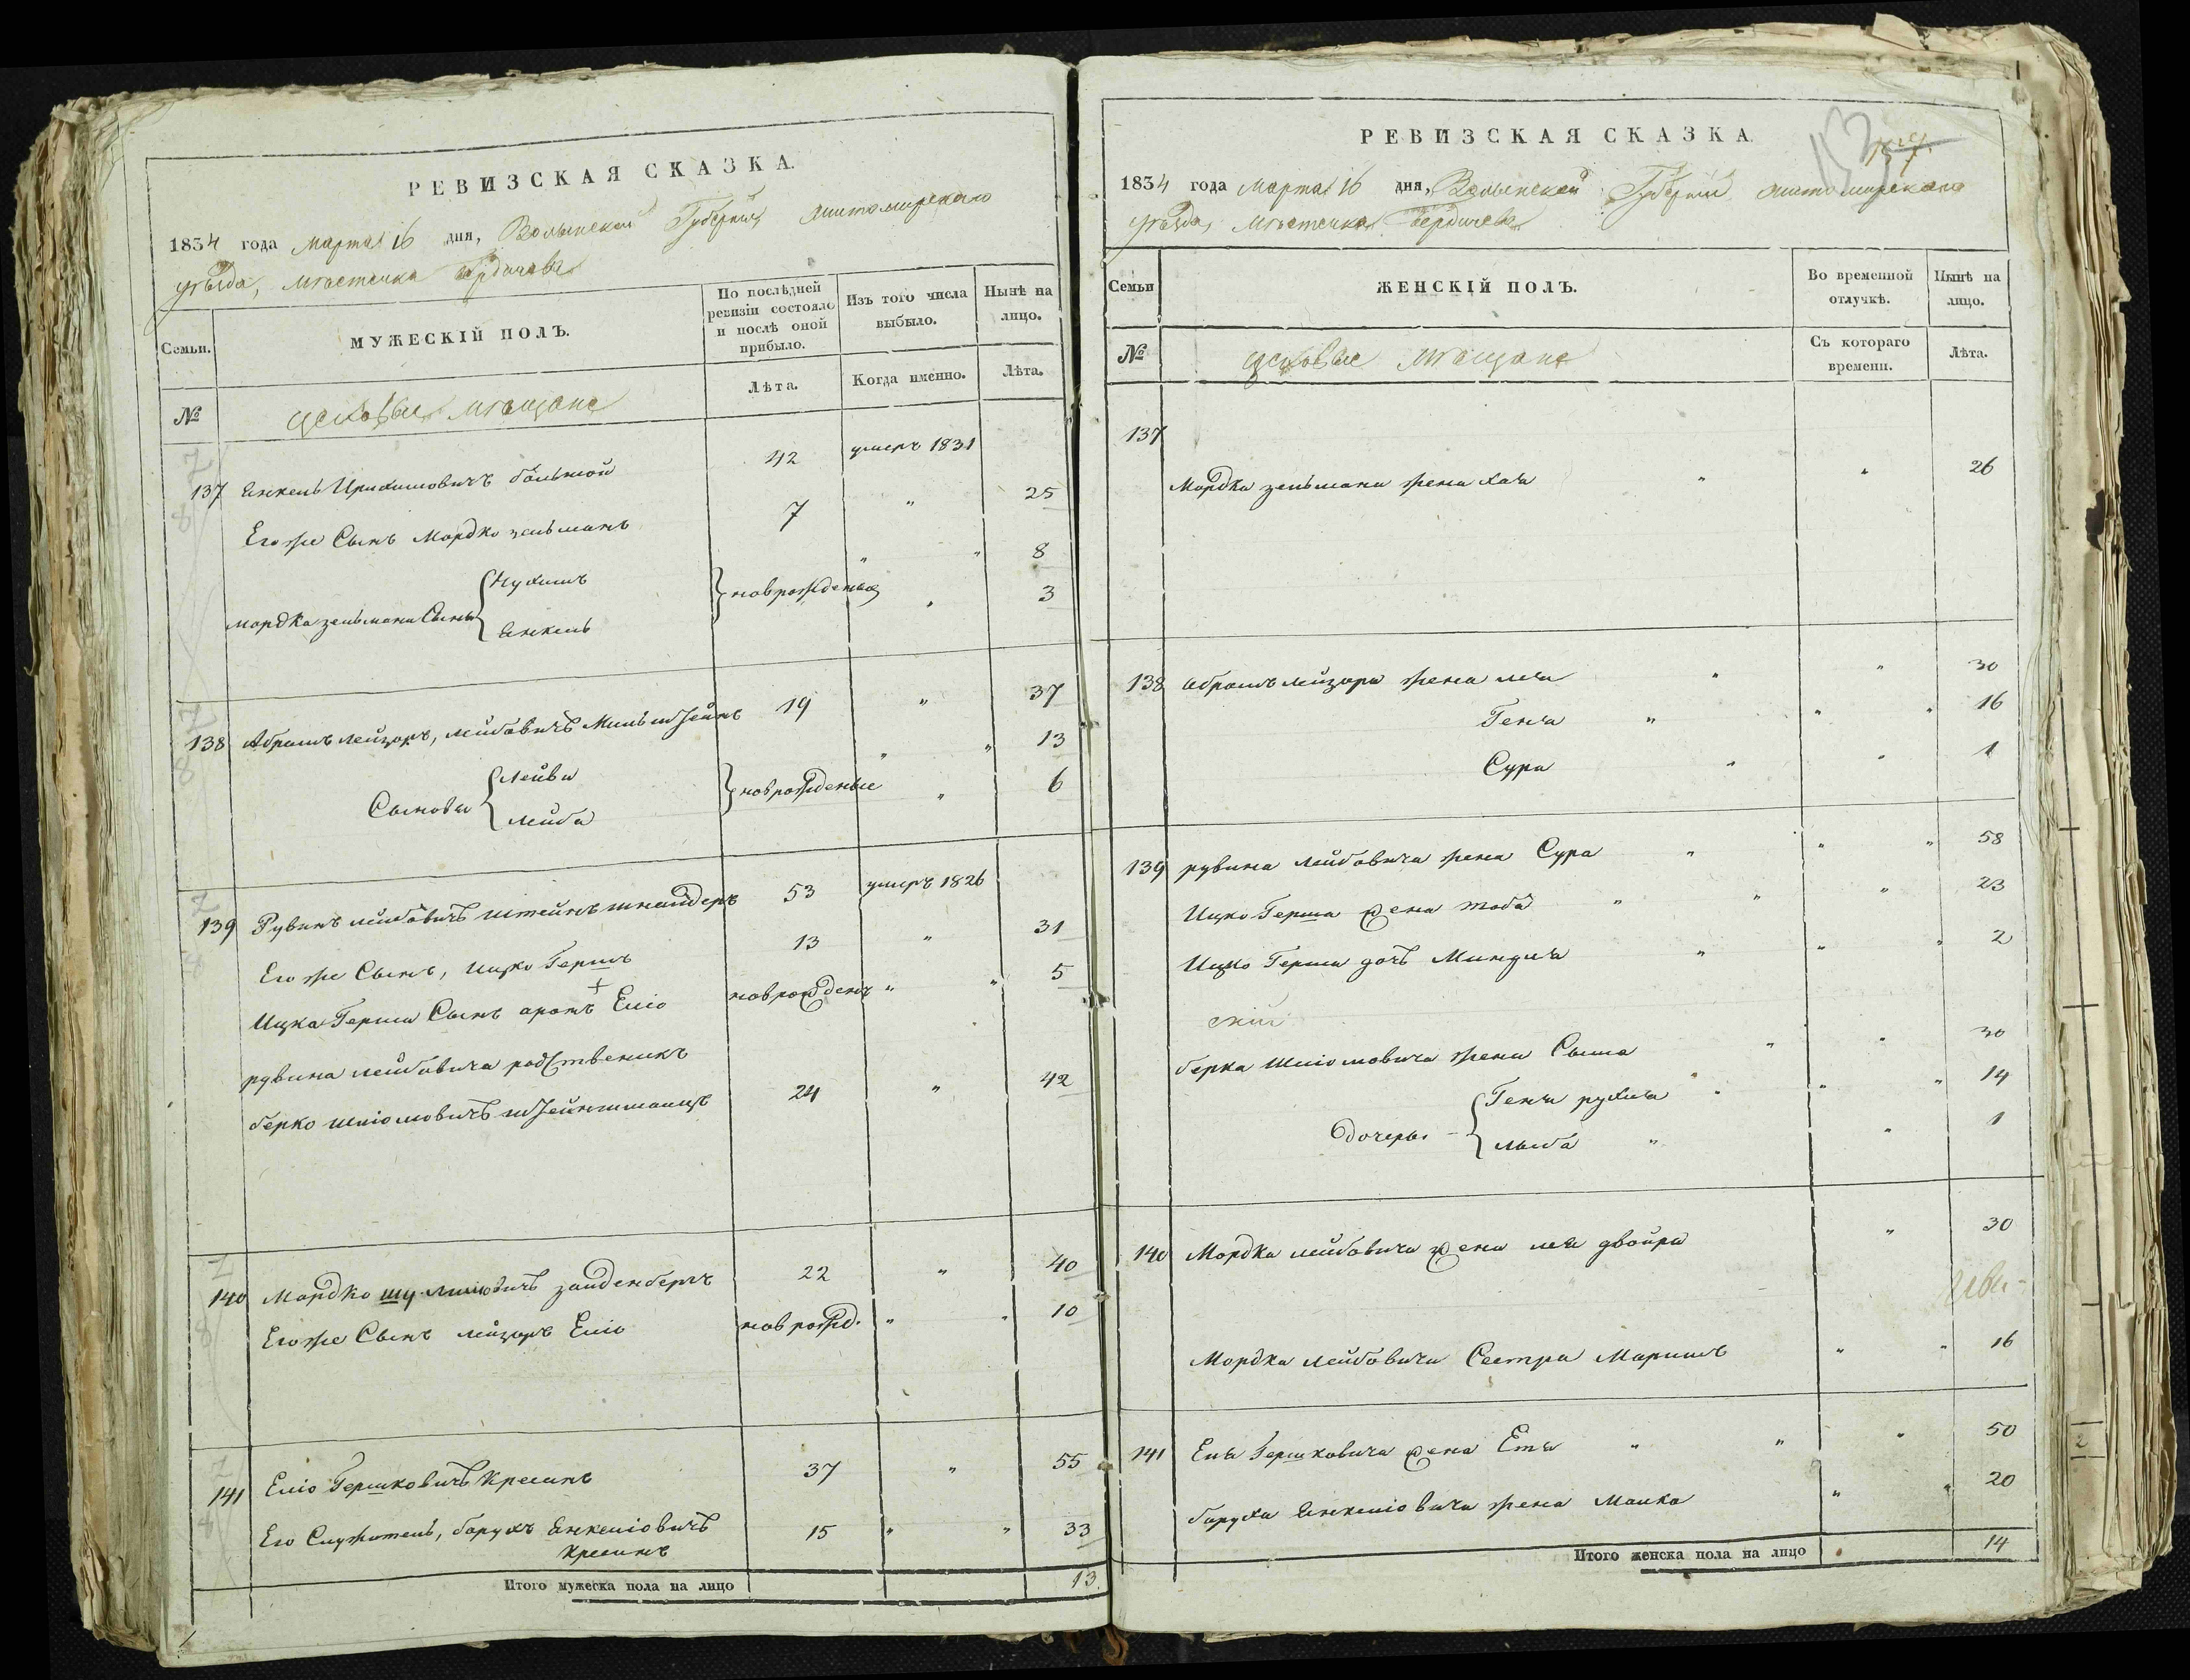 РЕВИЗСКАЯ СКАЗКА.
1834 года Марта 16 дня, Волынской Губерніи, Житомирского
уѣзда, Мѣстечка Бердичева
Семьи.
МУЖЕСКІЙ ПОЛЪ.
По послѣдней ревизіи состояло и послѣ оной прибыло.
Изъ того числа выбыло.
Нынѣ на лицо.
№
цеховые мѣщане
Лѣта.
Когда именно.
Лѣта.
137 Янкель больной 42 умеръ 1831
Его же Сынъ Мордко зельманъ 7 " 25
Мордка зельмана Сыны { Нухимъ } новрожденыя " " 8
Янкель " 3
138 Абрамъ лейзоръ, лейбовичъ Мильштейнъ 19 " 37
Сыновья { Лейви } новрожденые " " 13
лейба " 6
139 Рувинъ лейбовичъ штейнъшнайдеръ 53 умеръ 1826
Его же Сынъ, Ицко Гершъ 13 " 31
Ицка Герша Сынъ аронъ Еліо новрожденъ " " 5
рувина лейбовича родственикъ
берко шліомовичъ 24 " 42
140 Мордко зайденбергъ 22 " 40
Его же Сынъ лейзоръ Еліо новрожд. " " 10
141 Еліо Гершковичъ Крелинъ 37 " 55
Его Служитель, барухъ Янкеліовичъ 15 " " 33
Крелинъ
Итого мужеска пола на лицо 13.
РЕВИЗСКАЯ СКАЗКА.
1834 года Марта 16 дня, Волынской Губерніи Житомирского
уѣзда, Мѣстечка Бердичева
Семьи
ЖЕНСКІЙ ПОЛЪ.
Во временной отлучкѣ.
Нынѣ на лицо.
№
цеховые мѣщане
Съ котораго времени.
Лѣта.
137
Мордка зельмана жена хая " " 26
138 Абрамъ лейзора жена лея " " 30
Геня " " " 16
Сура " " 1
139 рувина лейбовича жена Сура " " " 58
Ицко Герша жена тоба " " " 23
Ицко Герша дочъ Миндля " " " 2
скій
берка шліомовича жена Сыма " " 30
Дочеры { Геня рухля " " " 14
лыба " " 1
140 Мордка лейбовича жена лея двойра " 30
Мордка лейбовича Сестра Маримъ " " 16
141 Еля Гершковича жена Етя " " " 50
баруха Янкеліовича жена Малка " " 20
Итого женска пола на лицо 14